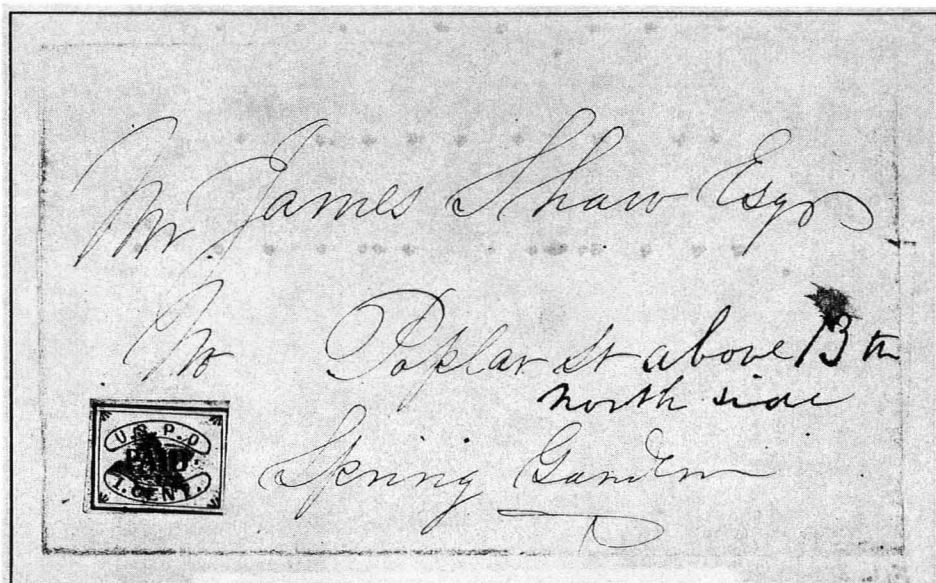 Mr James Shaw Esqr
No Poplar st above 13 th
north side
Spring Garden
U.S.P.O
PAID
1.CENT.